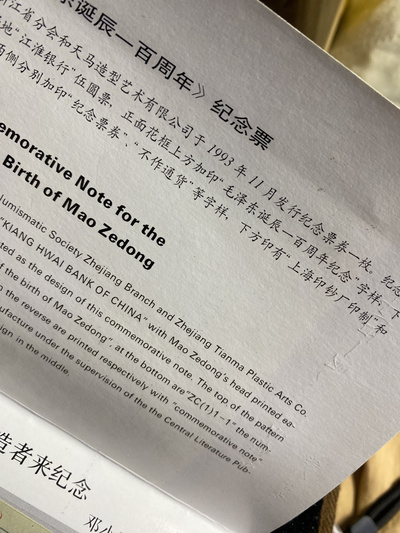 东诞辰一百周年》纪念票
浙江省分会和天马造型艺术有限公司于1993年11月发行纪念票券一枚。纪念
地“江淮银行”伍圆票,正面花框上方加印“毛泽东诞辰一百周年纪念”字样,下
两侧分别加印“纪念票券、“不作通货”等字样,下方印有“上海印钞厂印制”和
emorative Note for the
Birth of Mao Zedong
Numismatic Society Zhejiang Branch and Zhejiang Tianma Plastic Arts Co.
"KIANG HWAI BANK OF CHINA" with Mao Zedong's head printed ea-
ted as the design of this commemorative note. The top of the pattern
f the birth of Mao Zedong", at the bottom are "ZC(1)1-1" the num-
n the reverse are printed respectively with "commemorative note"
ufacture under the supervision of the the Central Literature Pub-
ign in the middle.
造者来纪念
邓小